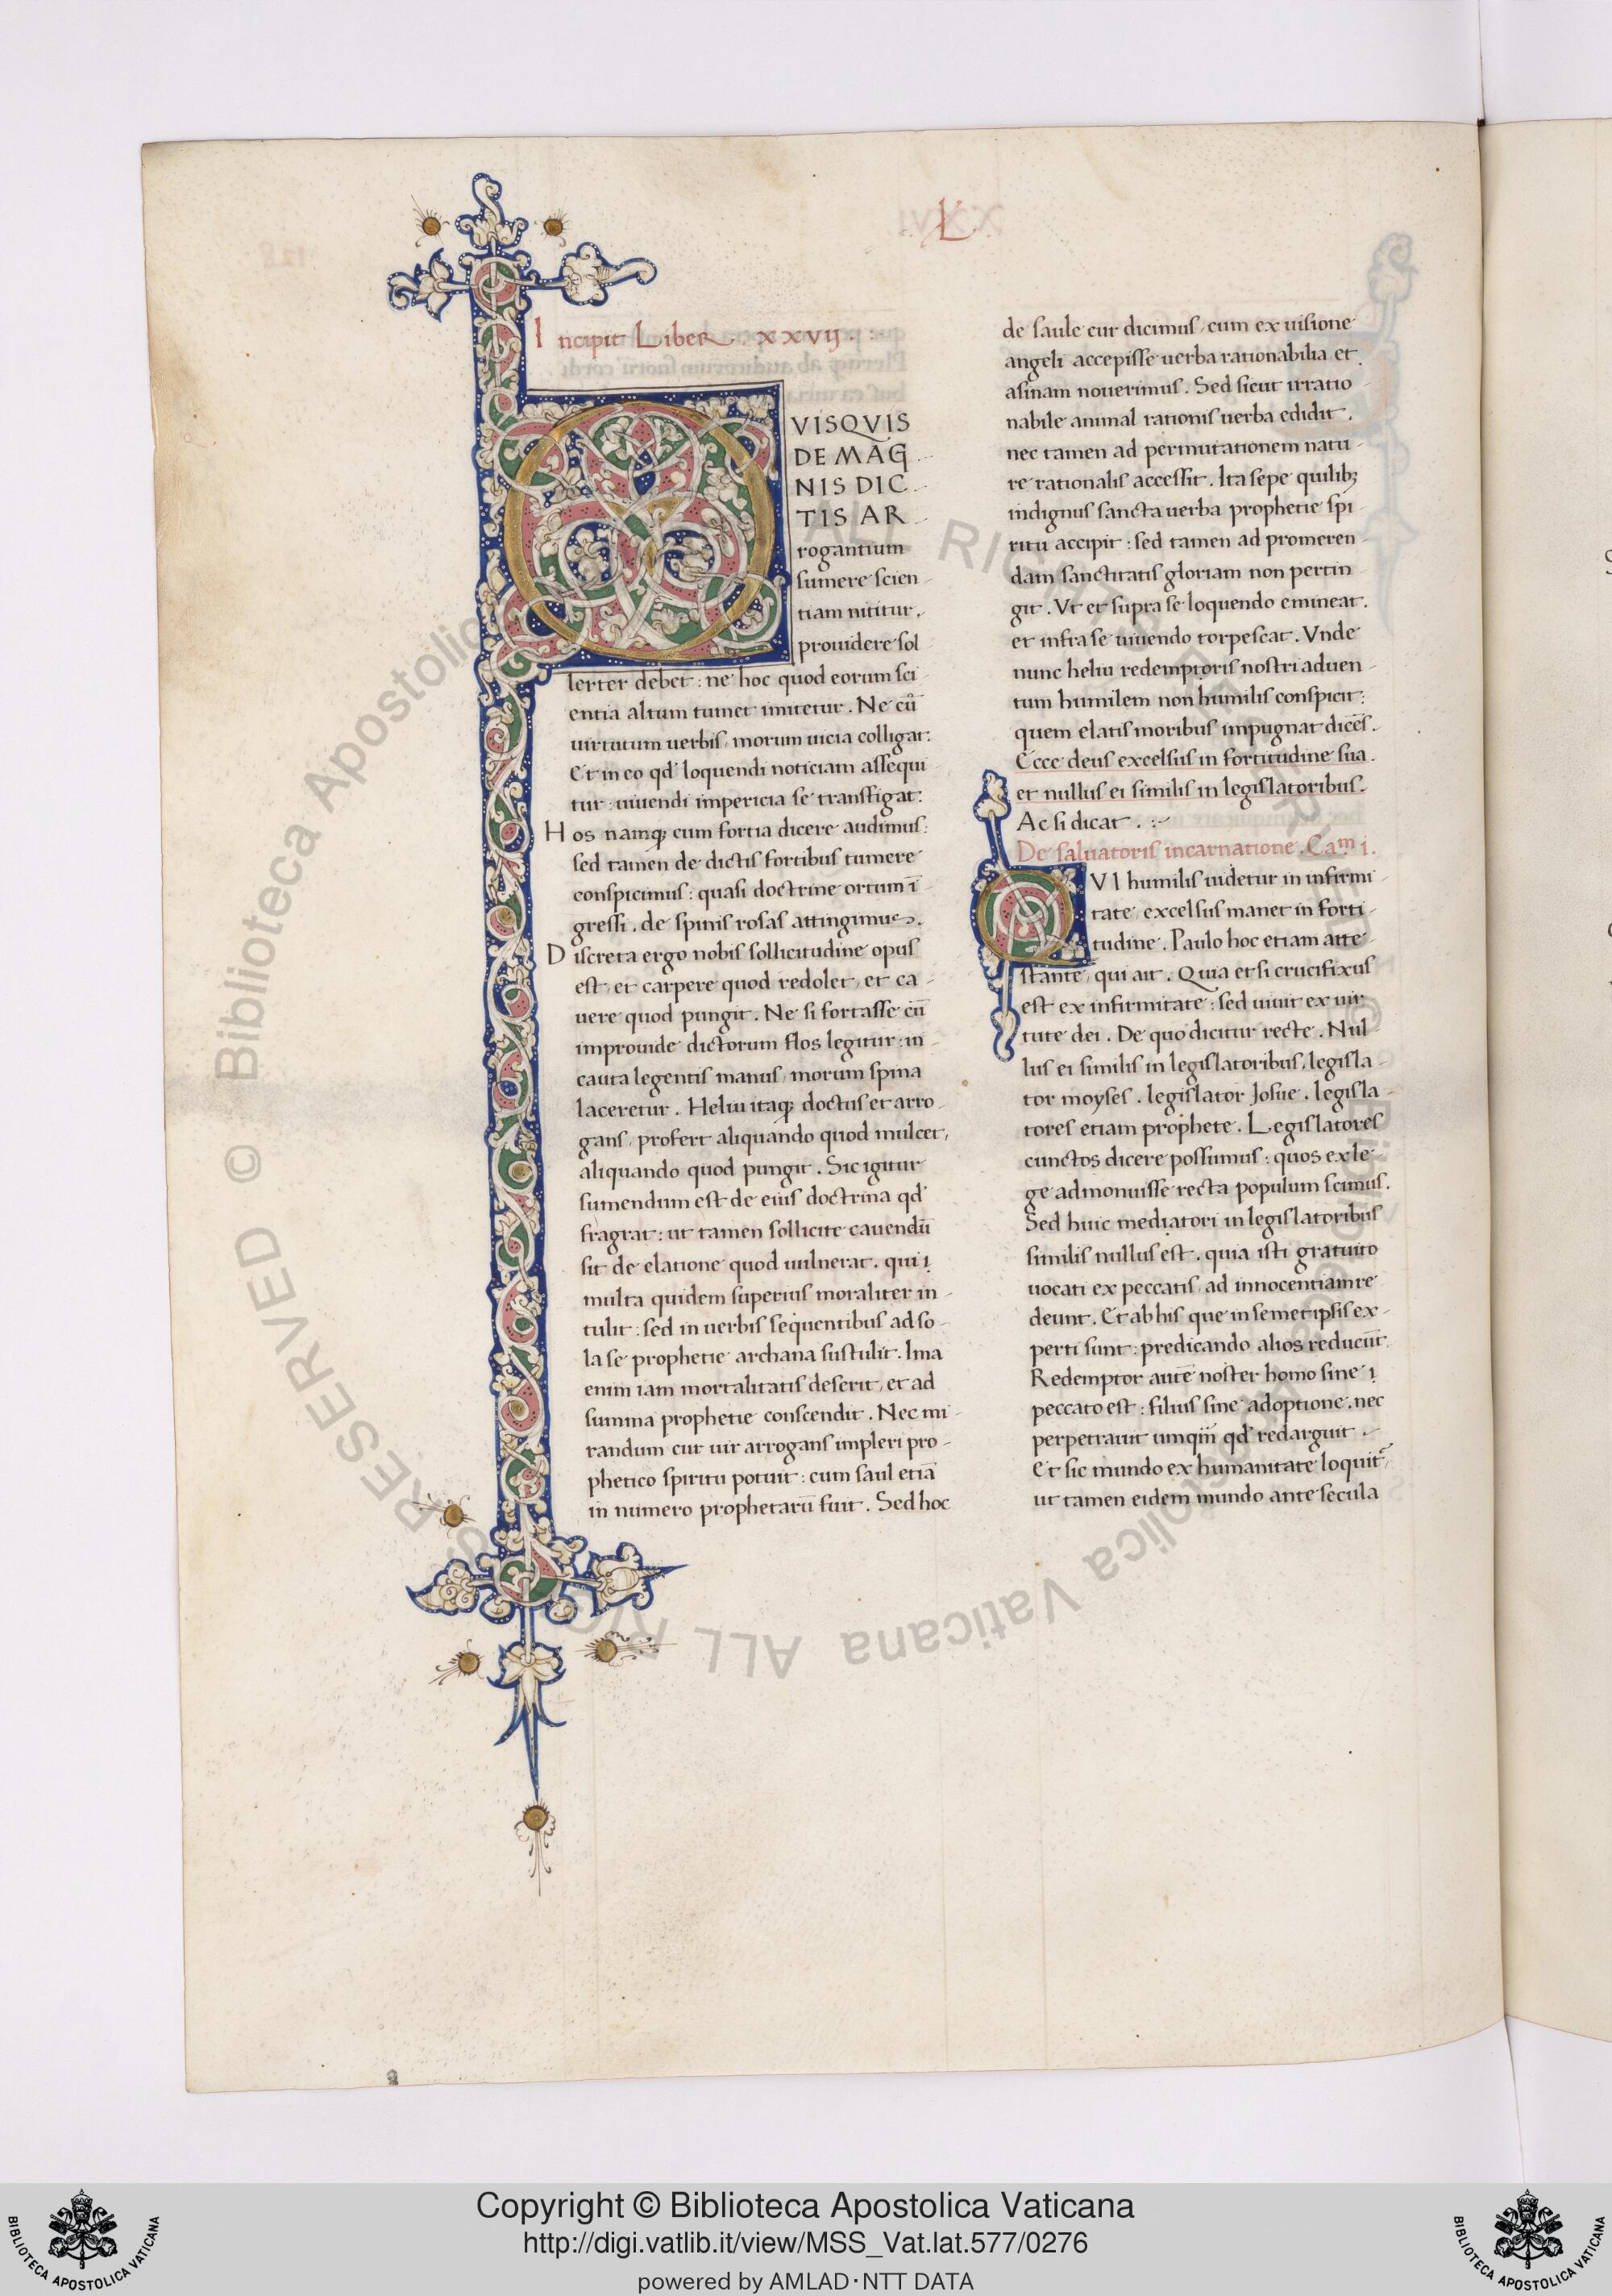 L
Incipit Liber . xxvij .
VISQVIS
DE MAG
NIS DIC
TIS AR
rogantium
sumere scien
tiam nititur .
prouidere sol
lerter debet : ne hoc quod eorum sci
entia altum tumet imitetur . Ne cū
uirtutum uerbis, morum uicia colligat :
Et in eo qd' loquendi noticiam assequi
tur : uiuendi impericia se transfigat :
Hos namq; cum fortia dicere audimus :
sed tamen de dictis fortibus tumere
conspicimus : quasi doctrine ortum ī
gressi . de spinis rosas attingimus .
Discreta ergo nobis sollicitudine opus
est, et carpere quod redolet, et ca
uere quod pungit . Ne si fortasse cū
improuide dictorum flos legitur : in
cauta legentis manus, morum spina
laceretur . Heliu itaq; doctus et arro
gans, profert aliquando quod mulcet,
aliquando quod pungit . Sic igitur
sumendum est de eius doctrina qd'
fragrat : ut tamen sollicite cauendū
sit de elatione quod uulnerat . qui
multa quidem superius moraliter in
tulit : sed in uerbis sequentibus ad so
la se prophetie archana sustulit . Ima
enim iam mortalitatis deserit, et ad
summa prophetie conscendit . Nec mi
randum cur uir arrogans impleri pro
phetico spiritu potuit : cum saul etiā
in numero prophetarū fuit . Sed hoc
de saule cur dicimus, cum ex uisione
angeli accepisse uerba rationabilia et
asinam nouerimus . Sed sicut irratio
nabile animal rationis uerba edidit .
nec tamen ad permutationem natu
re rationalis accessit . Ita sepe quilib;
indignus sancta uerba prophetie spi
ritu accipit : sed tamen ad promeren
dam sanctitatis gloriam non pertin
git . Vt et supra se loquendo emineat .
et infra se uiuendo torpescat . Vnde
nunc heliu redemptoris nostri aduen
tum humilem non humilis conspicit :
quem elatis moribus impugnat dicēs .
Ecce deus excelsus in fortitudine sua .
et nullus ei similis in legislatoribus .
Ac si dicat .
De saluatoris incarnatione . Cam i .
VI humilis uidetur in infirmi
tate, excelsus manet in forti
tudine . Paulo hoc etiam atte
stante, qui ait . Quia et si crucifixus
est ex infirmitate : sed uiuit ex uir
tute dei . De quo dicitur recte . Nul
lus ei similis in legislatoribus, legisla
tor moyses . legislator Josue . legisla
tores etiam prophete . Legislatores
cunctos dicere possumus : quos ex le
ge admonuisse recta populum scimus .
Sed huic mediatori in legislatoribus
similis nullus est . quia isti gratuito
uocati ex peccatis, ad innocentiam re
deunt . Et ab his que in semet ipsis ex
perti sunt : predicando alios reducūt
Redemptor autē noster homo sine
peccato est : filius sine adoptione . nec
perpetrauit umqm̄ qd' redarguit .
Et sic mundo ex humanitate loquit̄,
ut tamen eidem mundo ante secula
© Biblioteca Apostolica Vaticana ALL RIGHTS RESERVED
Copyright © Biblioteca Apostolica Vaticana
http://digi.vatlib.it/view/MSS_Vat.lat.577/0276
powered by AMLAD·NTT DATA
BIBLIOTECA APOSTOLICA VATICANA
BIBLIOTECA APOSTOLICA VATICANA